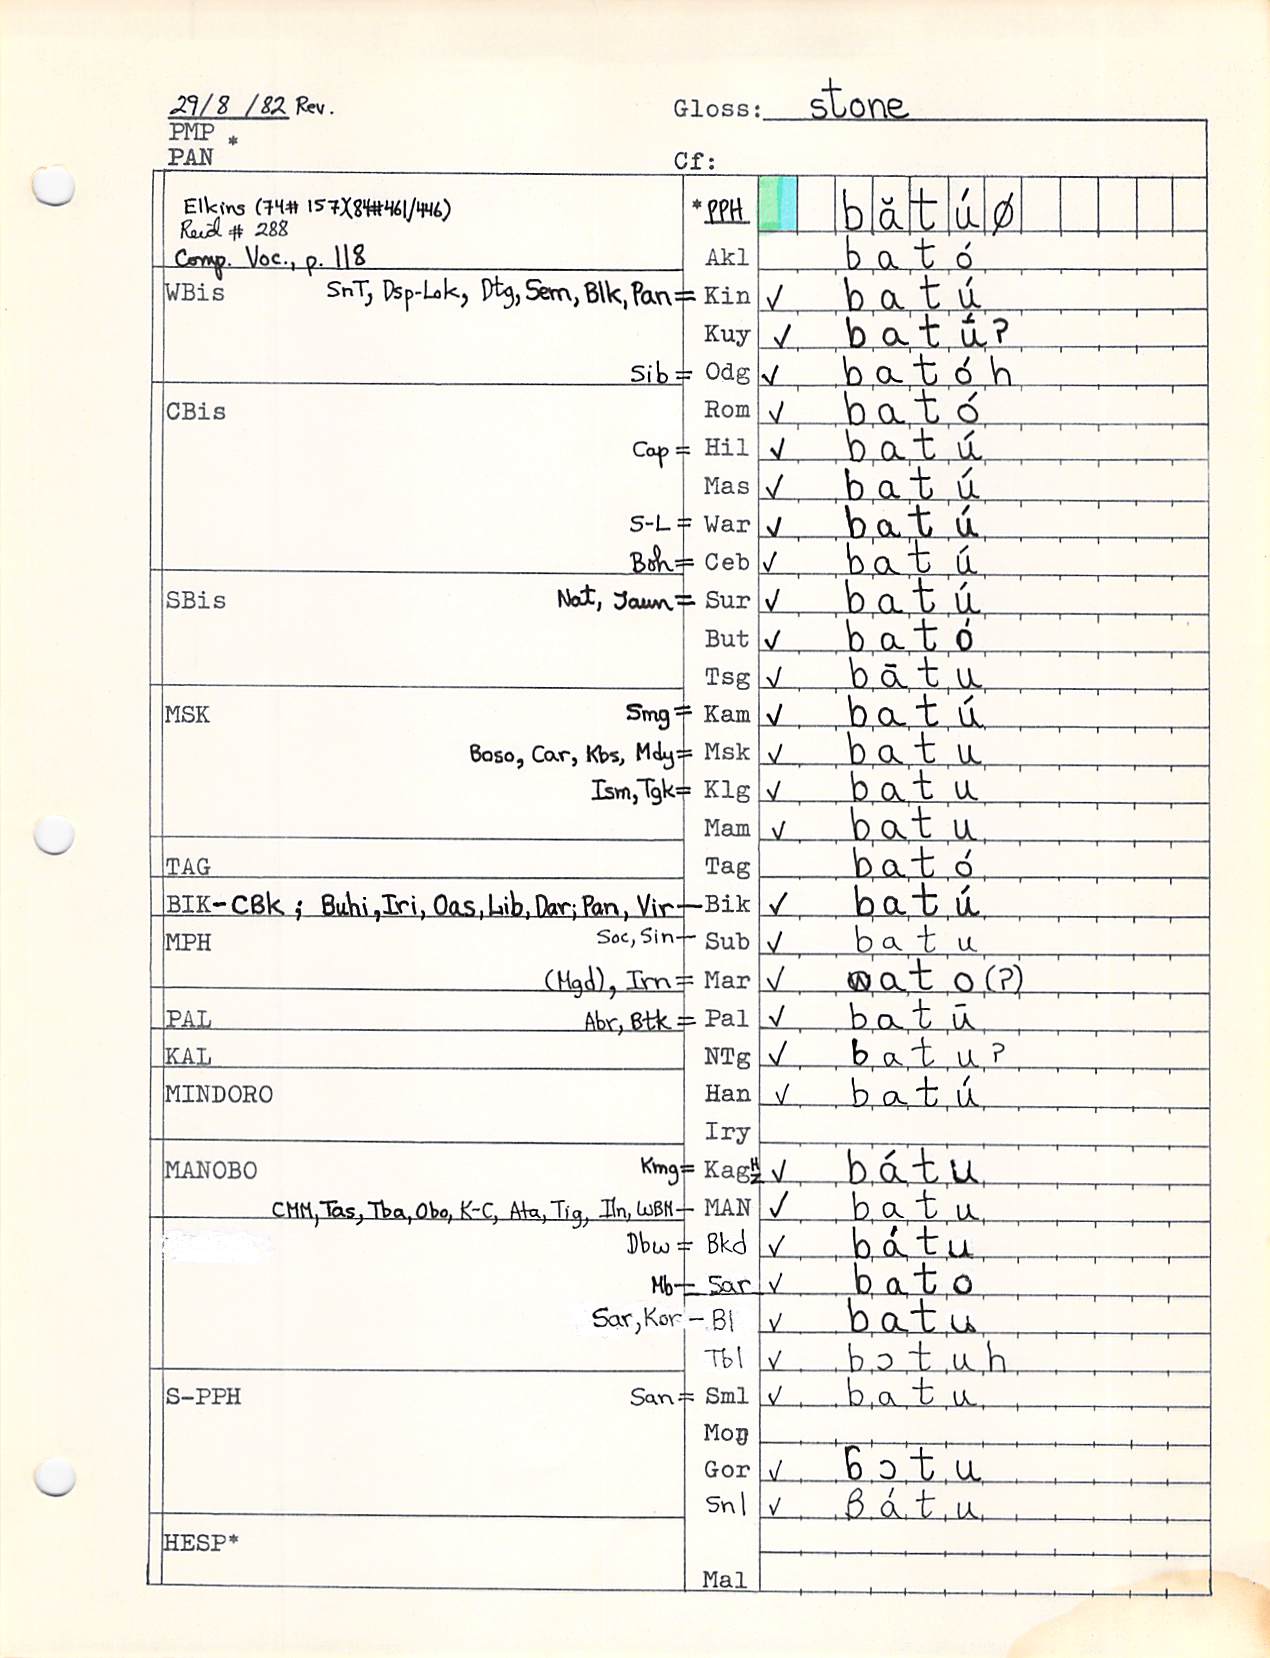 29/8/82 Rev. Gloss: stone
PMP *
PAN Cf:
Elkins (74# 157)(84#461/446) *PPH b ă t ú ø
Reid # 288
Comp. Voc., p. 118 Akl b a t ó
WBis SnT, Dsp-Lok, Dtg, Sem, Blk, Pan = Kin ✓ b a t ú
Kuy ✓ b a t ú ?
Sib = Odg ✓ b a t ó h
CBis Rom ✓ b a t ó
Cap = Hil ✓ b a t ú
Mas ✓ b a t ú
S-L = War ✓ b a t ú
Boh = Ceb ✓ b a t ú
SBis Nat, Jaun = Sur ✓ b a t ú
But ✓ b a t ó
Tsg ✓ b ā t u
MSK Smg = Kam ✓ b a t ú
Boso, Car, Kbs, Mdy = Msk ✓ b a t u
Ism, Tgk = Klg ✓ b a t u
Mam ✓ b a t u
TAG Tag b a t ó
BIK - CBk ; Buhi, Iri, Oas, Lib, Dar; Pan, Vir — Bik ✓ b a t ú
MPH Soc, Sin — Sub ✓ b a t u
(Mgd), Irn = Mar ✓ w a t o (?)
PAL Abr, Btk = Pal ✓ b a t ū
KAL NTg ✓ b a t u ?
MINDORO Han ✓ b a t ú
Iry
MANOBO Kmg = Kag ✓ b á t u
CMM, Tas, Tba, Obo, K-C, Ata, Tig, Iln, WBM — MAN ✓ b a t u
Dbw = Bkd ✓ b á t u
Mb — Sar ✓ b a t o
Sar, Kor - Bl ✓ b a t u
Tbl ✓ b ɔ t u h
S-PPH San = Sml ✓ b a t u
Moŋ
Gor ✓ ɓ ɔ t u
Snl ✓ β á t u
HESP*
Mal